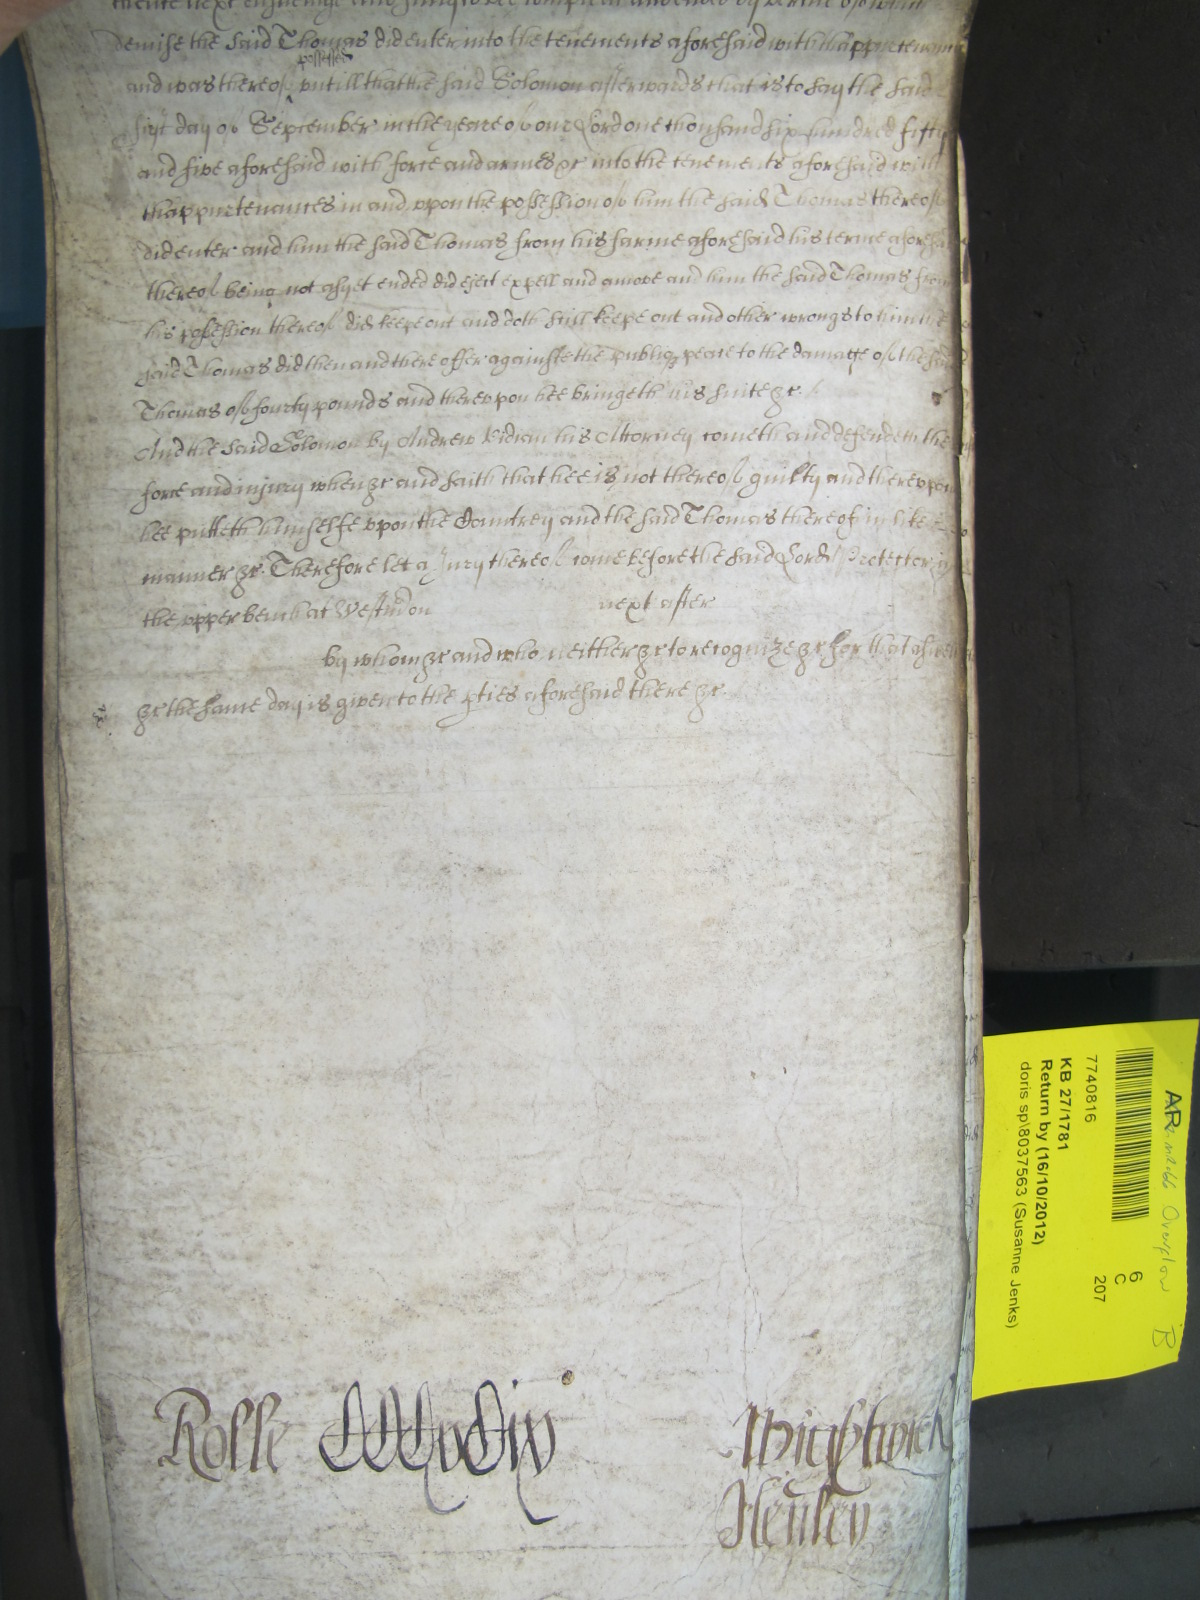 thence next ensueinge and fully to bee compleat and ended by vertue of which
demise the said Thomas did enter into the tenements aforesaid with thappurtenanc
possessed
and was thereof vntill that the said Solomon afterwards that is to say the said
sixt day of September in the yeare of our Lord one thousand six hundred fifty
and five aforesaid with force and armes &c into the tenements aforesaid with
thappurtenances in and vpon the possession of him the said Thomas thereof
did enter and him the said Thomas from his farme aforesaid his terme aforesaid
thereof being not as yet ended did eject expell and amove and him the said Thomas from
his possession thereof did keepe out and doth still keepe out and other wrongs to him the
said Thomas did then and there offer againste the publiq peace to the damage of the said
Thomas of fourty pounds and therevpon hee bringeth his suite &c /
And the said Solomon by Andrew Vidian his Attorney cometh and defendeth the
force and injury when &c and saith that hee is not thereof guilty and therevpon
hee putteth himselfe vpon the Countrey and the said Thomas thereof in like
manner &c. Therefore let a Jury thereof come before the said Lord Protector in
the vpper bench at Westm on next after
by whom &c and who neither &c to recognize &c for that aswell
&c the same day is given to the pties aforesaid there &c.
Rolle
Wightwick
Henley
AR
6
C
207
7740816
KB 27/1781
Return by (16/10/2012)
doris sp\8037563 (Susanne Jenks)
Overflow B